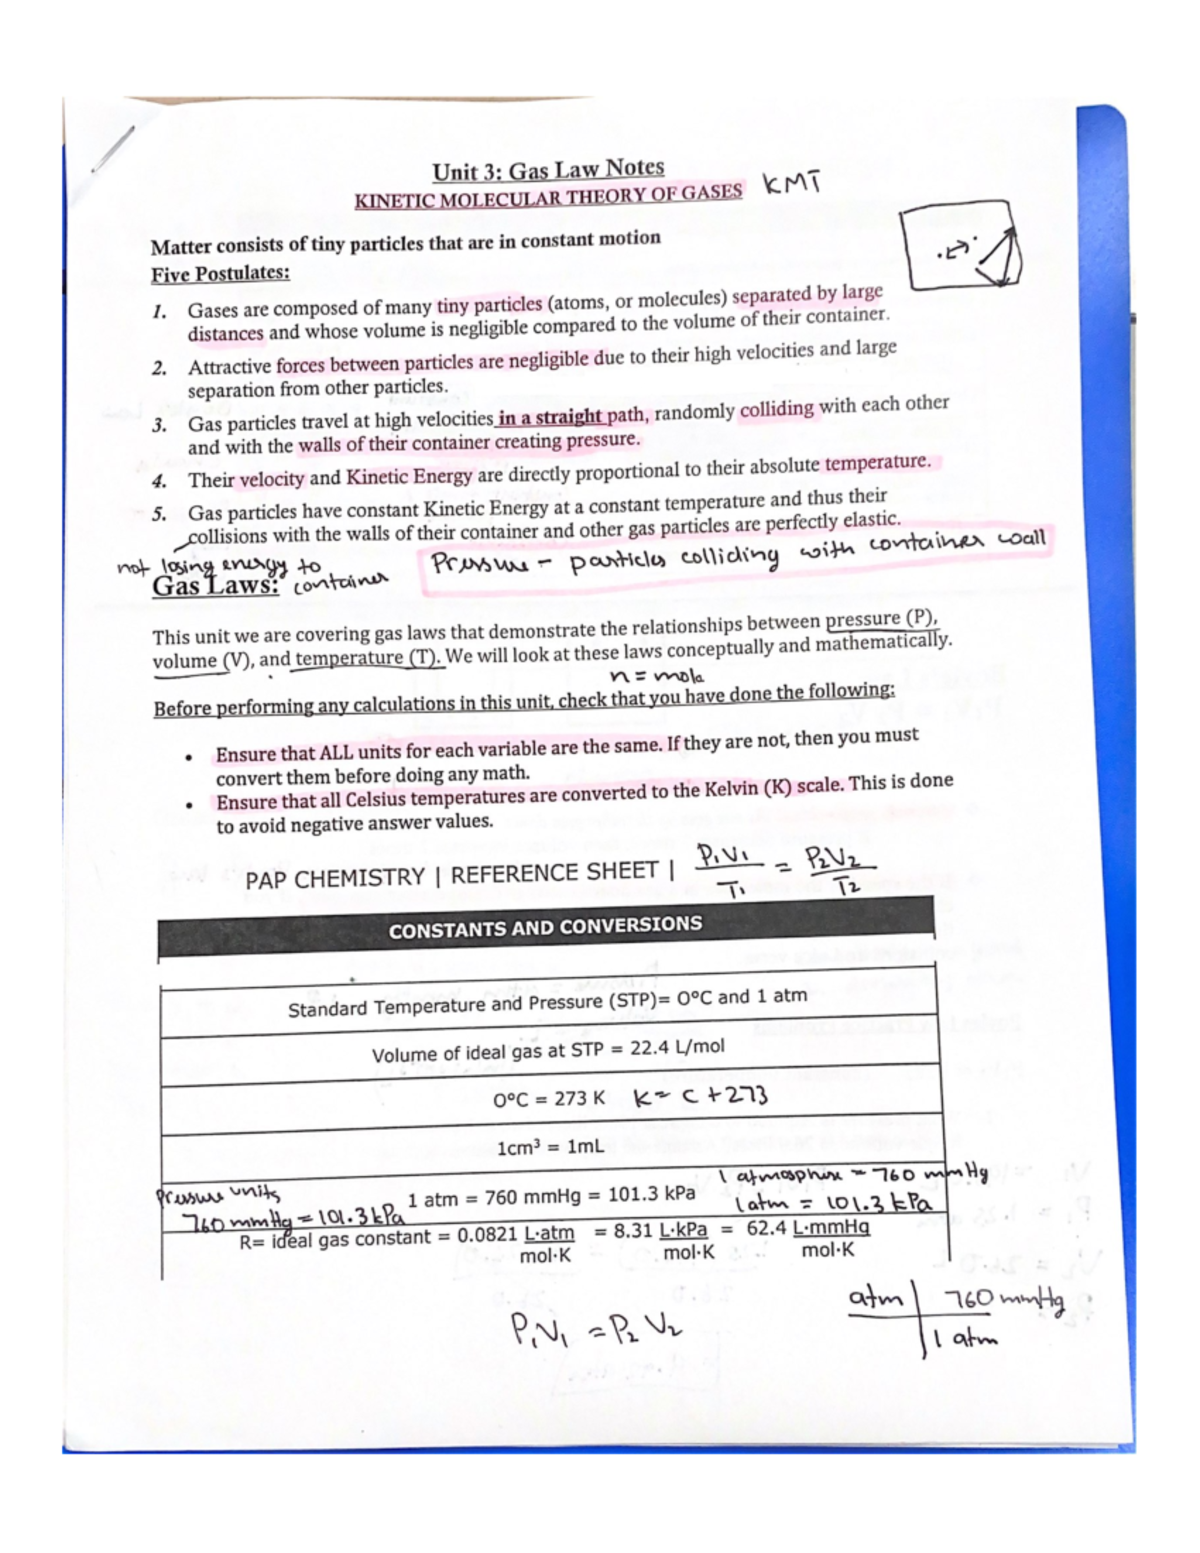 Unit 3: Gas Law Notes
KINETIC MOLECULAR THEORY OF GASES KMT
Matter consists of tiny particles that are in constant motion
Five Postulates:
1. Gases are composed of many tiny particles (atoms, or molecules) separated by large
distances and whose volume is negligible compared to the volume of their container.
2. Attractive forces between particles are negligible due to their high velocities and large
separation from other particles.
3. Gas particles travel at high velocities in a straight path, randomly colliding with each other
and with the walls of their container creating pressure.
4. Their velocity and Kinetic Energy are directly proportional to their absolute temperature.
5. Gas particles have constant Kinetic Energy at a constant temperature and thus their
collisions with the walls of their container and other gas particles are perfectly elastic.
not losing energy to
container
Pressure - particles colliding with container wall
Gas Laws:
This unit we are covering gas laws that demonstrate the relationships between pressure (P),
volume (V), and temperature (T). We will look at these laws conceptually and mathematically.
n = mola
Before performing any calculations in this unit, check that you have done the following:
• Ensure that ALL units for each variable are the same. If they are not, then you must
convert them before doing any math.
• Ensure that all Celsius temperatures are converted to the Kelvin (K) scale. This is done
to avoid negative answer values.
PAP CHEMISTRY | REFERENCE SHEET | P₁V₁ = P₂V₂
T₁ T₂
CONSTANTS AND CONVERSIONS
Standard Temperature and Pressure (STP)= 0°C and 1 atm
Volume of ideal gas at STP = 22.4 L/mol
0°C = 273 K K = C + 273
1cm³ = 1mL
Pressure units
760 mmHg = 101.3 kPa
1 atm = 760 mmHg = 101.3 kPa
1 atmosphere = 760 mmHg
1 atm = 101.3 kPa
R= ideal gas constant = 0.0821 L·atm = 8.31 L·kPa = 62.4 L·mmHg
mol·K mol·K mol·K
P₁V₁ = P₂V₂
atm 760 mmHg
1 atm